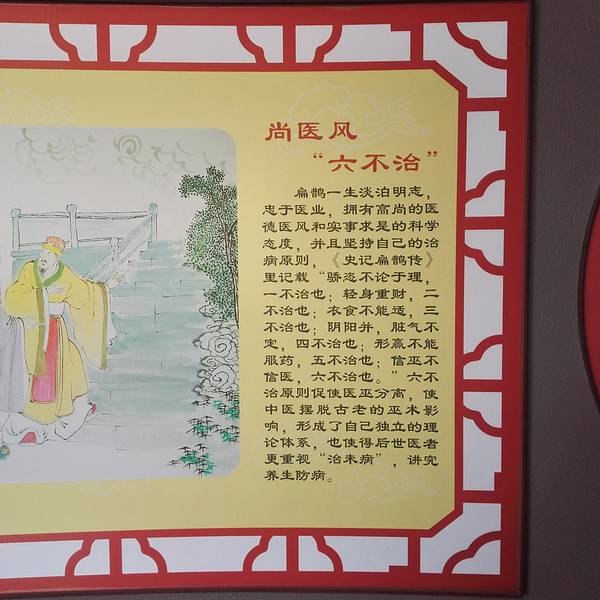 尚医风
“六不治”
扁鹊一生淡泊明志，
忠于医业，拥有高尚的医
德医风和实事求是的科学
态度，并且坚持自己的治
病原则，《史记扁鹊传》
里记载“骄恣不论于理，
一不治也；轻身重财，二
不治也；衣食不能适，三
不治也；阴阳并，脏气不
定，四不治也；形羸不能
服药，五不治也；信巫不
信医，六不治也。”六不
治原则促使医巫分离，使
中医摆脱古老的巫术影
响，形成了自己独立的理
论体系，也使得后世医者
更重视“治未病”，讲究
养生防病。